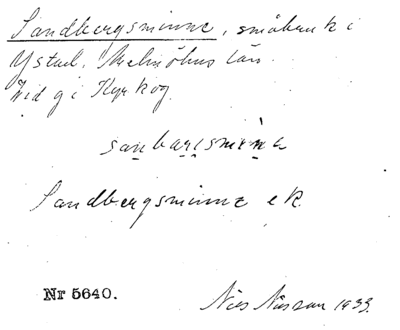 Sandbergsminne, småbruk i
Ystad, Malmöhus län.
Vid g i Kyrkog.
Sandbergsminne ek.
Nr 5640.
Nils Nilsson 1933.